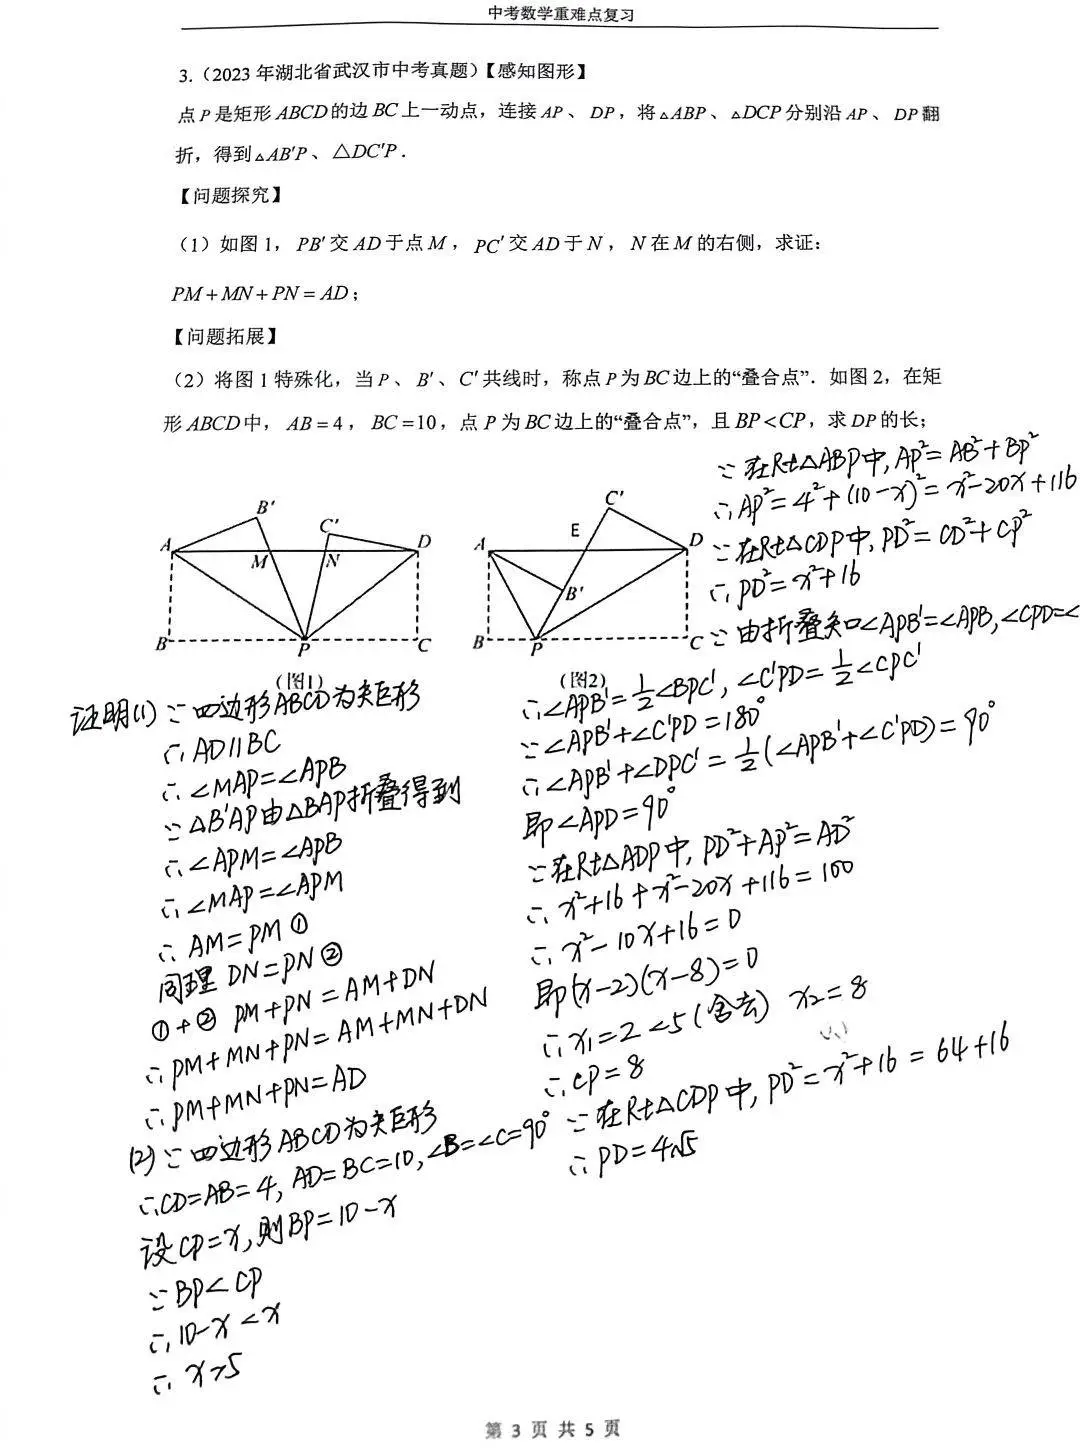 中考数学重难点复习
3.（2023年湖北省武汉市中考真题）【感知图形】
点P是矩形ABCD的边BC上一动点，连接AP、DP，将△ABP、△DCP分别沿AP、DP翻
折，得到△AB′P、△DC′P．
【问题探究】
（1）如图1，PB′交AD于点M，PC′交AD于N，N在M的右侧，求证：
PM+MN+PN=AD；
【问题拓展】
（2）将图1特殊化，当P、B′、C′共线时，称点P为BC边上的“叠合点”．如图2，在矩
形ABCD中，AB=4，BC=10，点P为BC边上的“叠合点”，且BP<CP，求DP的长；
A B′ M C′ N D B P C
(图1)
A E C′ D B′ B P C
(图2)
证明(1) ∵四边形ABCD为矩形
∴AD∥BC
∴∠MAP=∠APB
∵△B′AP由△BAP折叠得到
∴∠APM=∠APB
∴∠MAP=∠APM
∴AM=PM①
同理 DN=PN②
①+② PM+PN=AM+DN
∴PM+MN+PN=AM+MN+DN
∴PM+MN+PN=AD
(2) ∵四边形ABCD为矩形
∴CD=AB=4, AD=BC=10, ∠B=∠C=90°
设CP=x,则BP=10-x
∵BP<CP
∴10-x<x
∴x>5
∵在Rt△ABP中,AP²=AB²+BP²
∴AP²=4²+(10-x)²=x²-20x+116
∵在Rt△CDP中,PD²=CD²+CP²
∴PD²=x²+16
∵由折叠知∠APB′=∠APB,∠CPD=∠
∴∠APB′=½∠BPC′,∠C′PD=½∠CPC′
∵∠APB′+∠C′PD=180°
∴∠APB′+∠DPC′=½(∠APB′+∠C′PD)=90°
即∠APD=90°
∵在Rt△ADP中,PD²+AP²=AD²
∴x²+16+x²-20x+116=100
∴x²-10x+16=0
即(x-2)(x-8)=0
∴x₁=2<5(舍去) x₂=8
∴CP=8
∵在Rt△CDP中,PD²=x²+16=64+16
∴PD=4√5
第 3 页 共 5 页